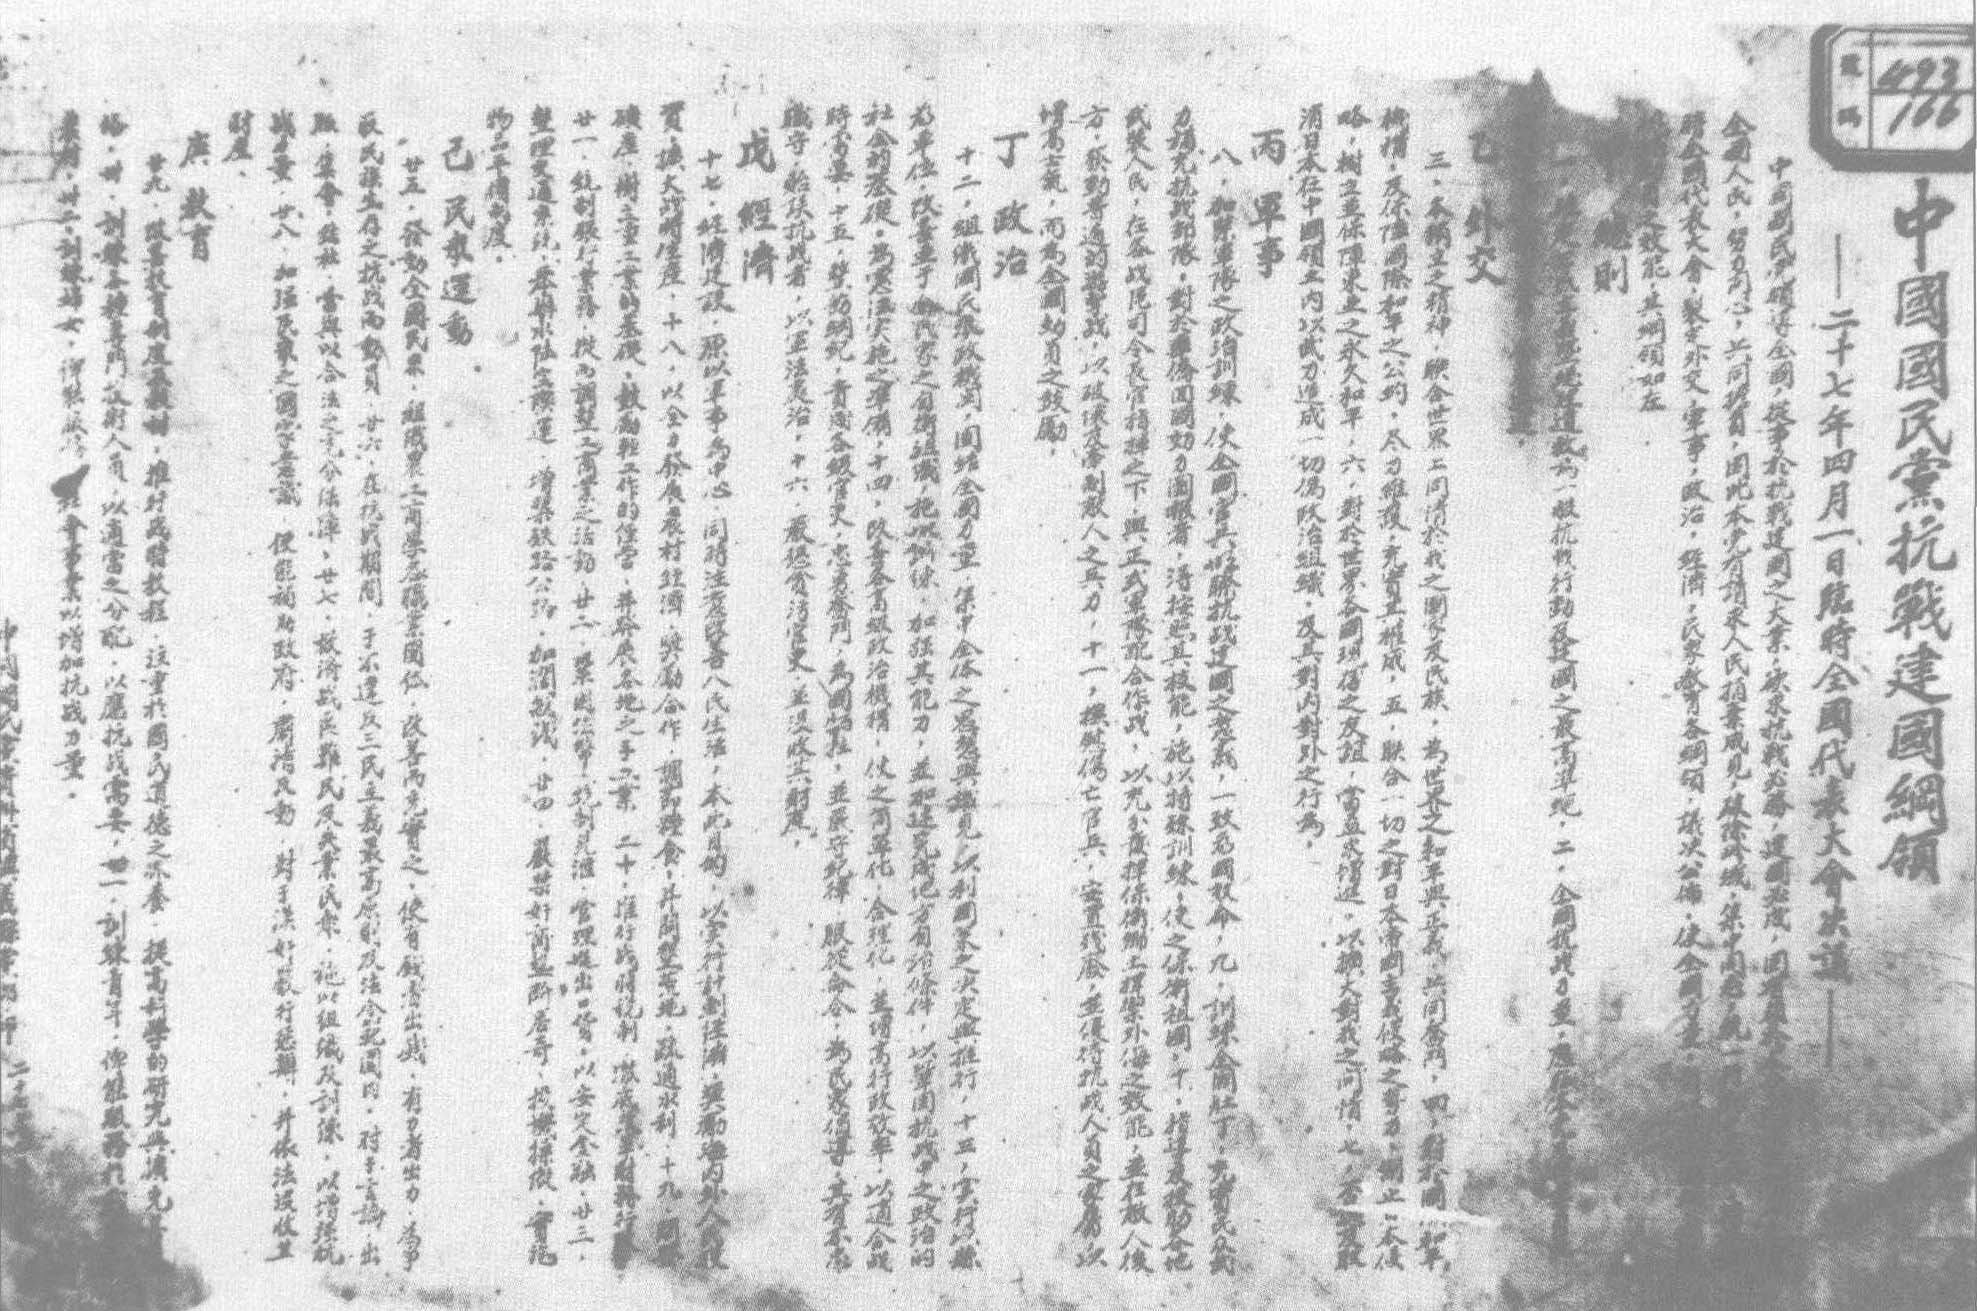 號碼
493
166
中國國民黨抗戰建國綱領
——二十七年四月一日臨時全國代表大會決議——
中國國民黨領導全國,從事於抗戰建國之大業,欲求抗戰必勝,建國必成,固有賴本黨
全國人民,努力同心,共同擔負,因此本黨有請求人民捐棄成見,破除畛域,集中意志,統一
時全國代表大會,製定外交,軍事,政治,經濟,民眾,教育各綱領,議決公佈,使全國力量,
之效能,其綱領如左
總則
為一般抗戰行動及建國之最高準繩,二,全國抗戰力量,應
乙 外交
三,本獨立之精神,聯合世界上同情於我之國家及民族,為世界之和平與正義,共同奮鬥,四,對於國際和平
機構,及保障國際和平之公約,尽力維護,充實其權威,五,聯合一切之對日本帝國主義侵略之勢力,制止日本侵
略,樹立並保障東亞之永久和平,六,對於世界各國現存之友誼,當益求增進,以擴大對我之同情,七,否認及取
消日本在中國領土內以武力造成一切偽政治組織,及其對內對外之行為,
丙 軍事
八,加緊軍隊之政治訓練,使全國官兵明瞭抗战建國之意義,一致為國效命,九,訓練全國壯丁,充實民众武
力補充抗战部隊,對於華僑回國効力圖報者,得按照其技能,施以特殊訓練,使之保衛祖國,十,指導及援助各地
武裝人民,在各战區司令長官指揮之下,與正式軍隊配合作战,以充分發揮保衛鄉土捍禦外侮之效能,並在敵人後
方,發動普遍的游擊战,以破壞及牽制敵人之兵力,十一,撫慰傷亡官兵,安置残廢,並優待抗战人員之家屬,以
增高士氣,而為全國動員之鼓勵,
丁 政治
十二,組織國民參政機関,團結全國力量,集中全体之思慮與識見,以利國策之決定與推行,十三,实行以縣
為單位,改善並健全民眾之自衛組織,施以訓練,加强其能力,並加速完成地方自治條件,以鞏固抗战中之政治的
社会的基礎,為憲法实施之準備,十四,改善各級政治機構,使之簡單化,合理化,並增高行政效率,以適合战
時需要,十五,整飭綱紀,責成各級官吏,忠勇奮鬥,為國犧牲,並嚴守紀律,服從命令,為民眾倡導,其有不忠
職守,貽誤抗战者,以軍法處治,十六,嚴懲貪污官吏,並沒收其財產,
戊 經濟
十七,經濟建設,應以軍事為中心,同時注意改善人民生活,本此目的,以实行計劃經濟,獎勵海內外人民投
資,擴大战時生產,十八,以全力發展農村經濟,獎勵合作,調節糧食,并開墾荒地,疏通水利,十九,開發
礦產,樹立重工業的基礎,鼓勵輕工作的經營,并發展各地之手工業 二十,推行战時税制,徹底改革財務行政
廿一,統制銀行業務,從而調整工商業之活動,廿二,鞏固法幣,統制外滙,管理進出口貨,以安定金融,廿三,
整理交通系統,舉辦水陸空聯運,增築鉄路公路,加闢航线,廿四,嚴禁奸商壟断居奇,投機操縱,實施
物品平價制度,
己 民眾運動
廿五,發動全國民眾,組織農工商學各職業團体,改善而充實之,使有錢者出錢,有力者出力,為爭
取民族生存之抗战而動員,廿六,在抗战期間,于不違反三民主義最高原則及法令範圍內,对于言論,出
版,集會,結社,當與以合法之充分保障,廿七,救濟战區難民及失業民眾,施以組織及訓練,以增强抗
战力量,廿八,加强民眾之國家意識,使能補助政府,肅清反動,对于漢奸嚴行懲辦,并依法没收其
財產,
庚 教育
廿九,改訂教育制度及教材,推行战時教程,注重於國民道德之修養,提高科學的研究與擴充
卅,訓練各種專門技術人員,以適當之分配,以應抗战需要,卅一,訓練青年,俾能服務於
農村,卅二,訓練婦女,俾能服務社會事業以增加抗战力量。